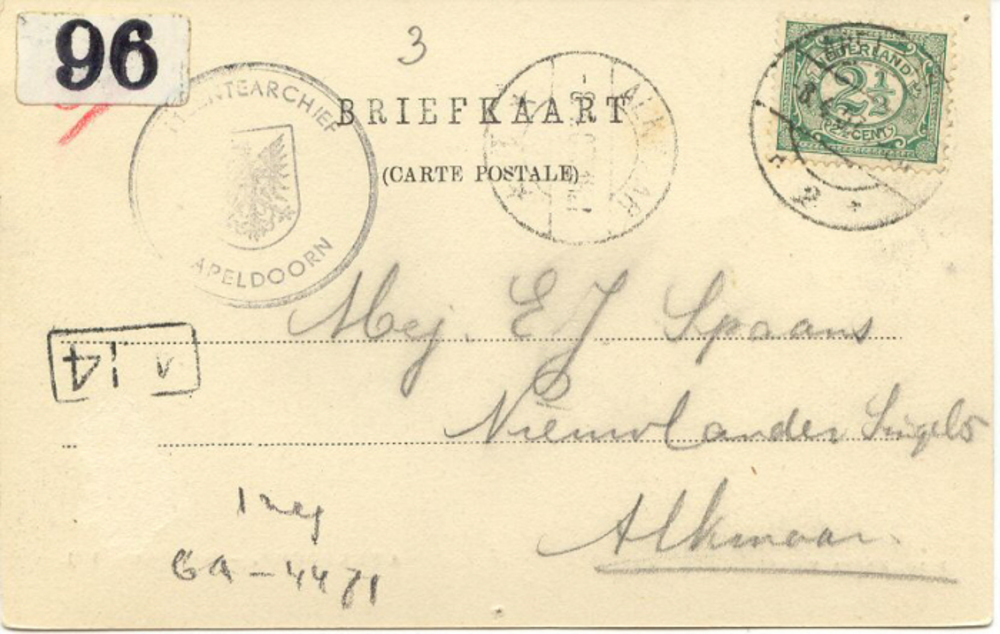 96
3
GEMEENTEARCHIEF
APELDOORN
BRIEFKAART
(CARTE POSTALE)
ALKMAAR
NEDERLAND
2½
2½ CENT
2
Mej. E J Spaans
Nieuwlander Singel 5
Alkmaar
14 v
1 neg
GA - 4471